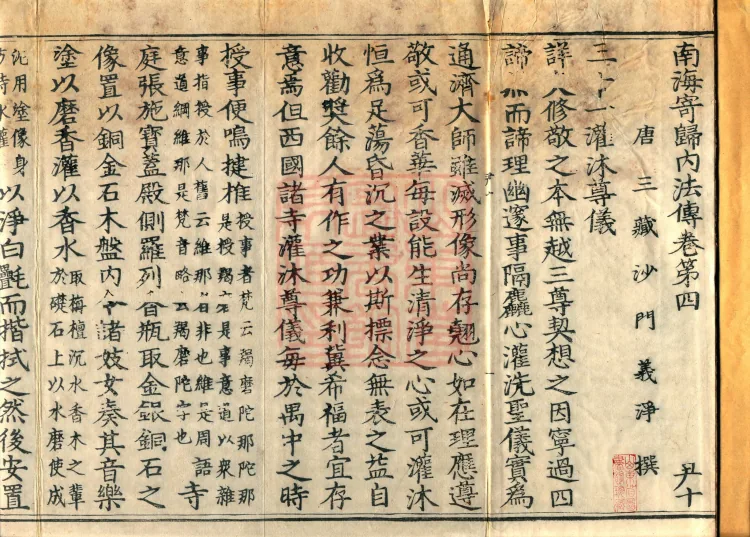 南海寄歸內法傳卷第四 尹十
唐三藏沙門義淨撰
三十一灌沐尊儀
詳夫修敬之本無越三尊契想之因寧過四
諦然而諦理幽邃事隔麁心灌洗聖儀實為
通濟大師雖滅形像尚存翹心如在理應遵
敬或可香華每設能生清淨之心或可灌沐
恒為足蕩昏沉之業以斯標念無表之益自
收勸獎餘人有作之功兼利冀希福者宜存
意焉但西國諸寺灌沐尊儀每於禺中之時
授事便鳴揵椎
授事者梵云羯磨陀那陀那
是授羯磨是事意道以衆雜
事指授於人舊云維那者非也維是周語
意道綱維那是梵音略去羯磨陀字也
寺
庭張施寶蓋殿側羅列香瓶取金銀銅石之
像置以銅金石木盤內令諸妓女奏其音樂
塗以磨香灌以香水
取栴檀沉水香木之輩
於礎石上以水磨使成
泥用塗像身
方持水灌
以淨白疊而揩拭之然後安置